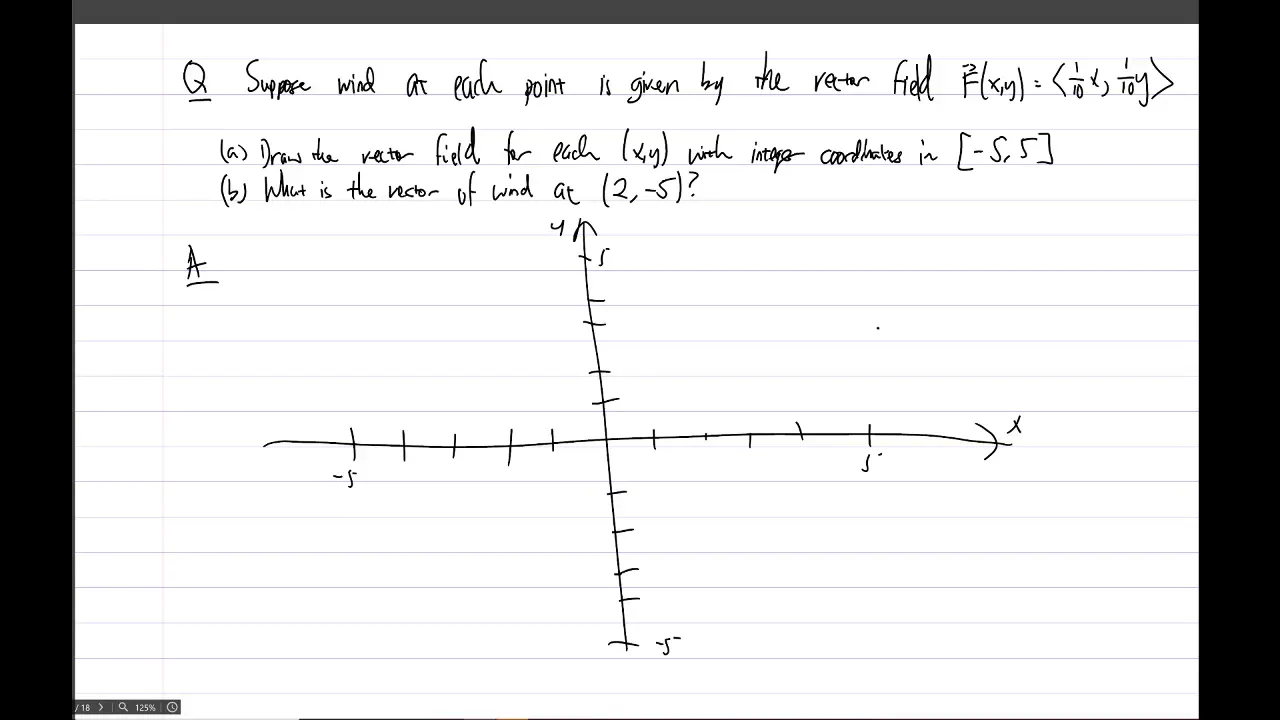 Q Suppose wind at each point is given by the vector field F⃗(x,y) = ⟨1/10 x, 1/10 y⟩
(a) Draw the vector field for each (x,y) with integer coordinates in [-5, 5]
(b) What is the vector of wind at (2, -5)?
A
y
5
x
-5
5
-5
/ 18
125%